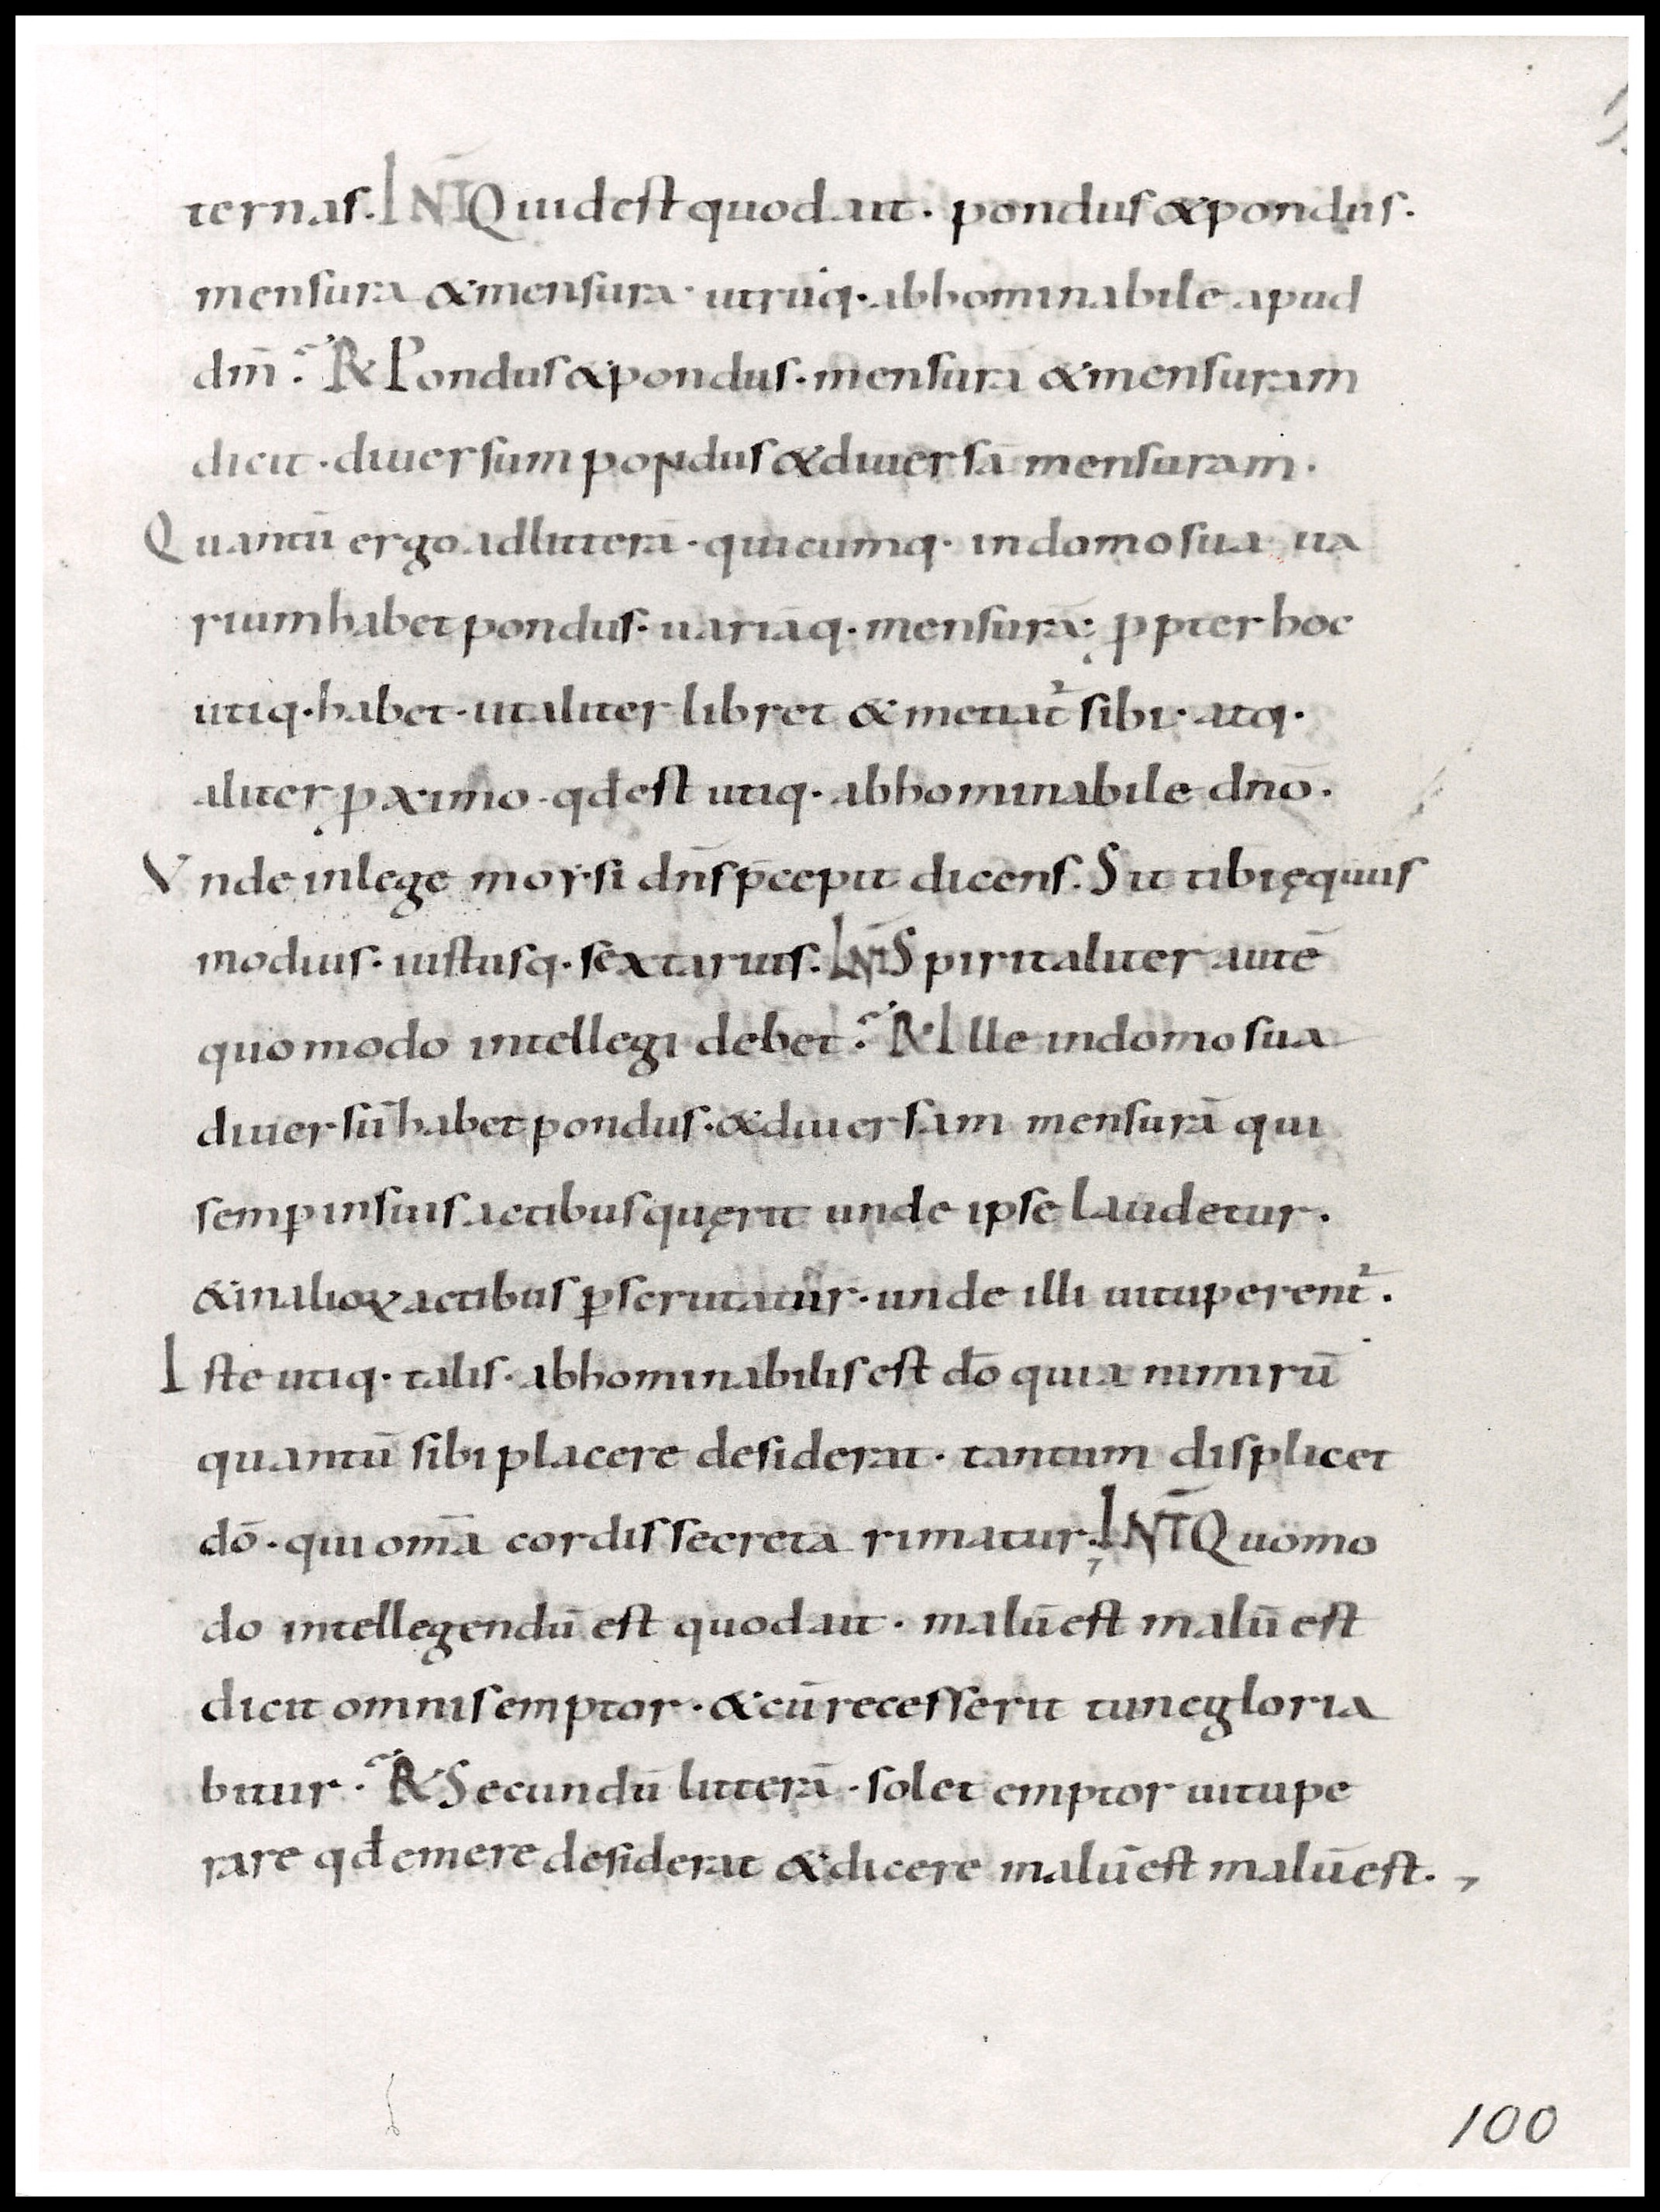 ternas. INT̄ Quid est quod ait · pondus & pondus ·
mensura & mensura · utrūq · abhominabile apud
dn̄m ? R& Pondus & pondus · mensurā & mensuram
dicit · diuersum pondus & diuersā mensuram ·
Quantū ergo ad litterā · quicumq · in domo sua ua
rium habet pondus · uariāq · mensurā; ꝓpter hoc
utiq · habet · ut aliter libret & metiat᷑ sibi · atq ·
aliter ꝓximo · qđ est utiq · abhominabile dn̄o ·
Vnde in lege moysi dn̄s p̄cepit dicens. Sit tibi ęquus
modius · iustusq · sextarius. INT̄ Spiritaliter autē
quomodo intellegi debet ? R& Ille in domo sua
diuersū habet pondus · & diuersam mensurā qui
semꝑ in suis actibus quęrit unde ipse laudetur ·
& in alioꝝ actibus ꝑscrutatur · unde illi uituperent᷑ ·
Iste utiq · talis · abhominabilis est dō quia nimirū
quantū sibi placere desiderat · tantum displicet
dō · qui om̄a cordis secreta rimatur ; INT̄ Quomo
do intellegendū est quod ait · malū est malū est
dicit omnis emptor · & cū recesserit tunc gloria
bitur ? R& Secundū litterā · solet emptor uitupe
rare qđ emere desiderat & dicere malū est malū est · ,
100